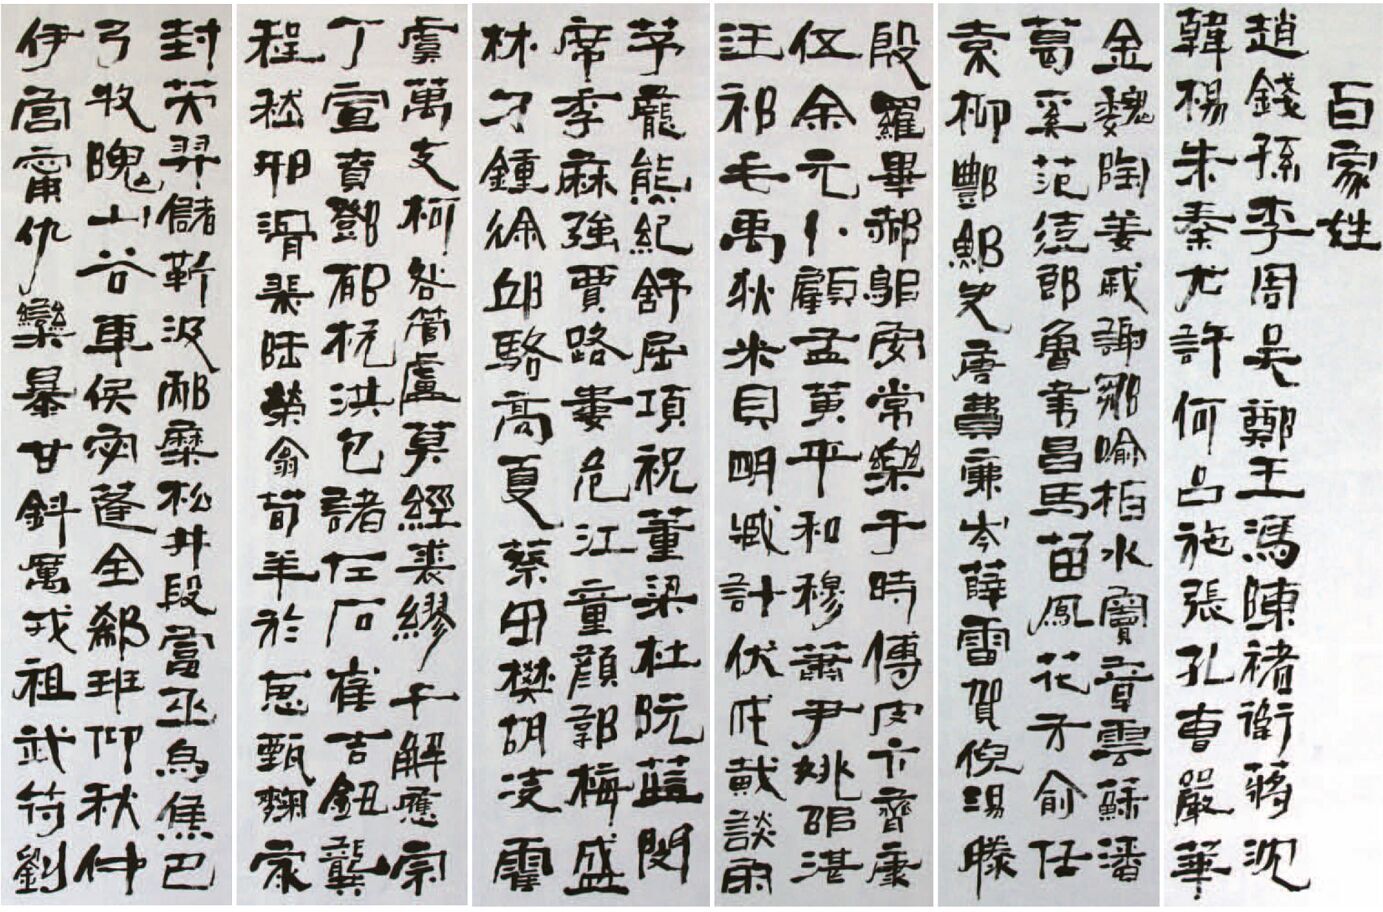 百家姓
趙錢孫李周吳鄭王馮陳褚衛蔣沈
韓楊朱秦尤許何呂施張孔曹嚴華
金魏陶姜戚謝鄒喻柏水竇章雲蘇潘
葛奚范彭郎魯韋昌馬苗鳳花方俞任
袁柳酆鮑史唐費廉岑薛雷賀倪湯滕
殷羅畢郝鄔安常樂于時傅皮卞齊康
伍余元卜顧孟黃平和穆蕭尹姚邵湛
汪祁毛禹狄米貝明臧計伏成戴談宋
茅龐熊紀舒屈項祝董梁杜阮藍閔
席季麻強賈路婁危江童顏郭梅盛
林刁鍾徐邱駱高夏蔡田樊胡凌霍
虞萬支柯昝管盧莫經裘繆干解應宗
丁宣賁鄧郁杭洪包諸左石崔吉鈕龔
程嵇邢滑裴陸榮翁荀羊於惠甄麴家
封芮羿儲靳汲邴糜松井段富巫烏焦巴
弓牧隗山谷車侯宓蓬全郗班仰秋仲
伊宮甯仇欒暴甘鈄厲戎祖武符劉